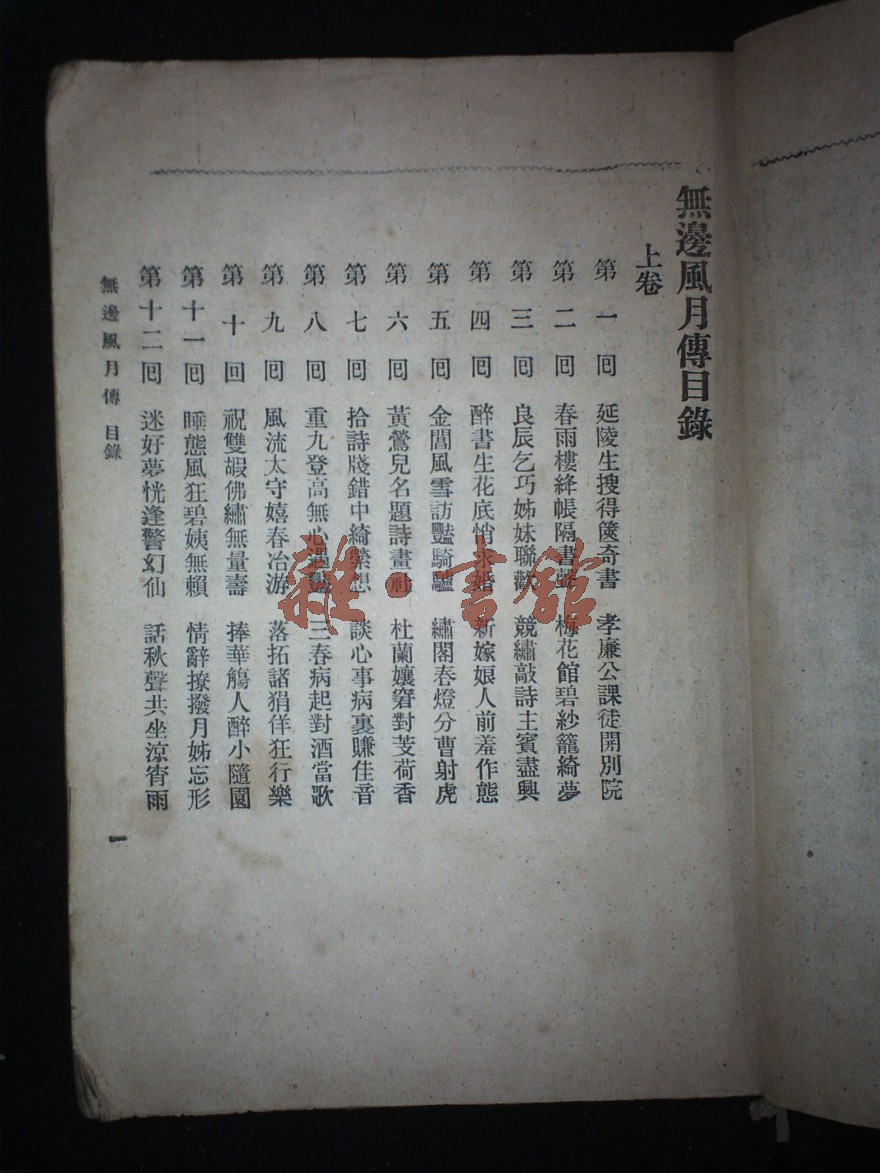 無邊風月傳目錄
上卷
第一回 延陵生搜得篋奇書 孝廉公課徒開別院
第二回 春雨樓絳帳隔書聲 梅花館碧紗籠綺夢
第三回 良辰乞巧姊妹聯歡 競繡敲詩主賓盡興
第四回 醉書生花底悄求婚 新嫁娘人前羞作態
第五回 金閶風雪訪豔騎驢 繡閣春燈分曹射虎
第六回 黃鶯兒名題詩畫社 杜蘭孃窘對芰荷香
第七回 拾詩牋錯中綺縈想 談心事病裏賺佳音
第八回 重九登高無心遇豔 三春病起對酒當歌
第九回 風流太守嬉春冶游 落拓諸狷佯狂行樂
第十回 祝雙嘏佛繡無量壽 捧華觴人醉小隨園
第十一回 睡態風狂碧姨無賴 情辭撩撥月姊忘形
第十二回 迷好夢恍逢警幻仙 話秋聲共坐涼宵雨
無邊風月傳 目錄
一
雜·書館